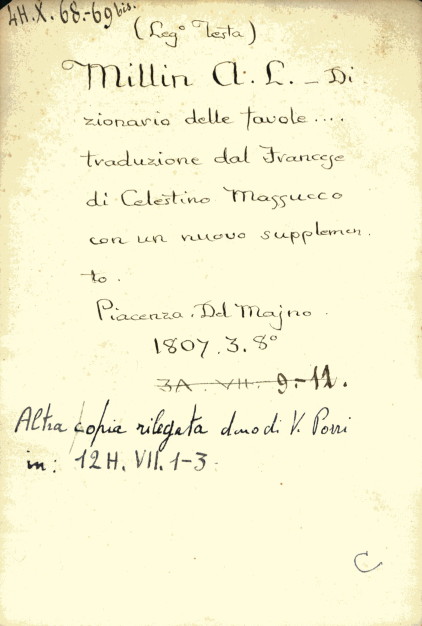 4H.X. 68.-69 bis.
(Leg° Testa)
Millin A. L. _ Di
zionario delle favole ....
traduzione dal Francese
di Celestino Massucco
con un nuovo supplemen.
to.
Piacenza. Del Majno.
1807. 3. 8°
3A. VII. 9.-12.
Altra copia rilegata dono di V. Porri
in: 12H. VII. 1-3.
C